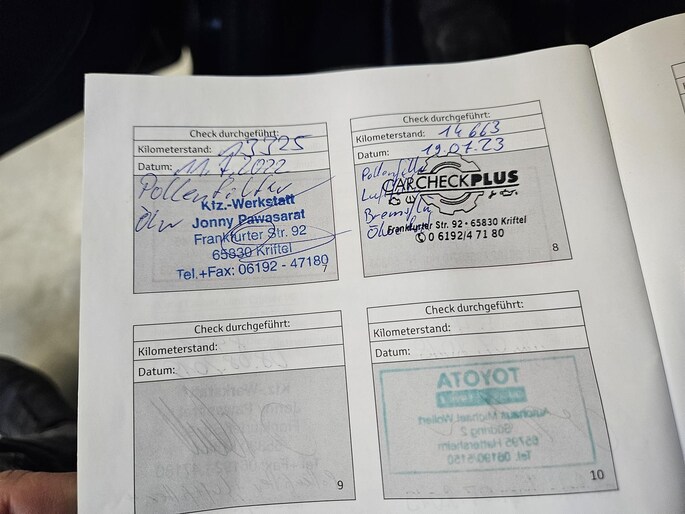 Check durchgeführt:
Kilometerstand: 13325
Datum: 11.7.2022
Pollenfilter
Kfz.-Werkstatt
Jonny Pawasarat
Frankfurter Str. 92
65830 Kriftel
Tel.+Fax: 06192 - 47180
7
Check durchgeführt:
Kilometerstand: 14663
Datum: 19.07.23
CAR.CHECKPLUS
Frankfurter Str. 92 • 65830 Kriftel
0 6192/4 71 80
8
Check durchgeführt:
Kilometerstand:
Datum:
9
Check durchgeführt:
Kilometerstand:
Datum:
TOYOTA
Autohaus Michael Wollert
65795 Hattersheim
Tel. 06190-5150
10